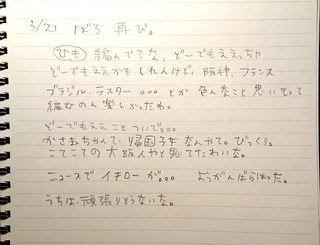 3/21 ばろ 再び。
ひも 編んでてな、どーでもええっちゃ
どーでもええかもしれんけど、阪神、フランス
ブラジル、ラスター 。。。とか 色んなこと思いもって
編むのん楽しかったわ。
どーでもええことついで。。。
かさおちゃんて、帰国子女なんやて。びっくり。
こてこての大阪人やと思てたわいな。
ニュースでイチローが。。。 ようがんばらはった。
うちは、頑張りとうないな。